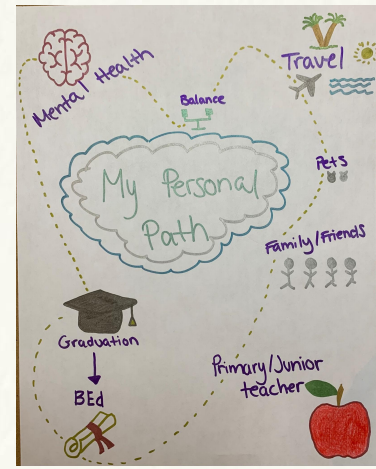 Mental Health
Balance
Travel
Pets
My Personal
Path
Family/Friends
Graduation
BEd
Primary/Junior
teacher